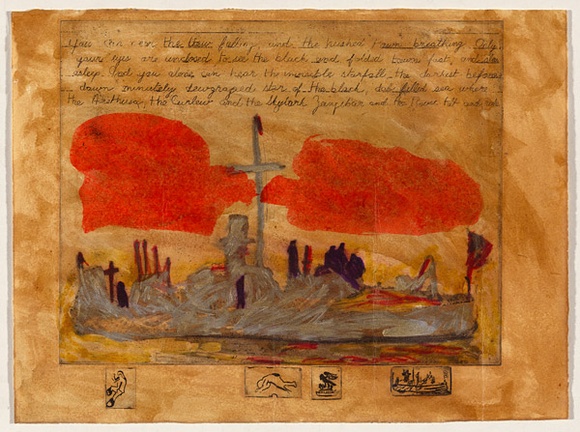 You can hear the dew falling, and the hushed town breathing. Only
your eyes are unclosed to see the black and folded town fast, and slow
asleep. And you alone can hear the invisible starfall, the darkest before
dawn minutely dewgrazed stir of the black, dab filled sea where
the Arethusa, the Curlew and the Skylark Zanzibar and the tilt and ride